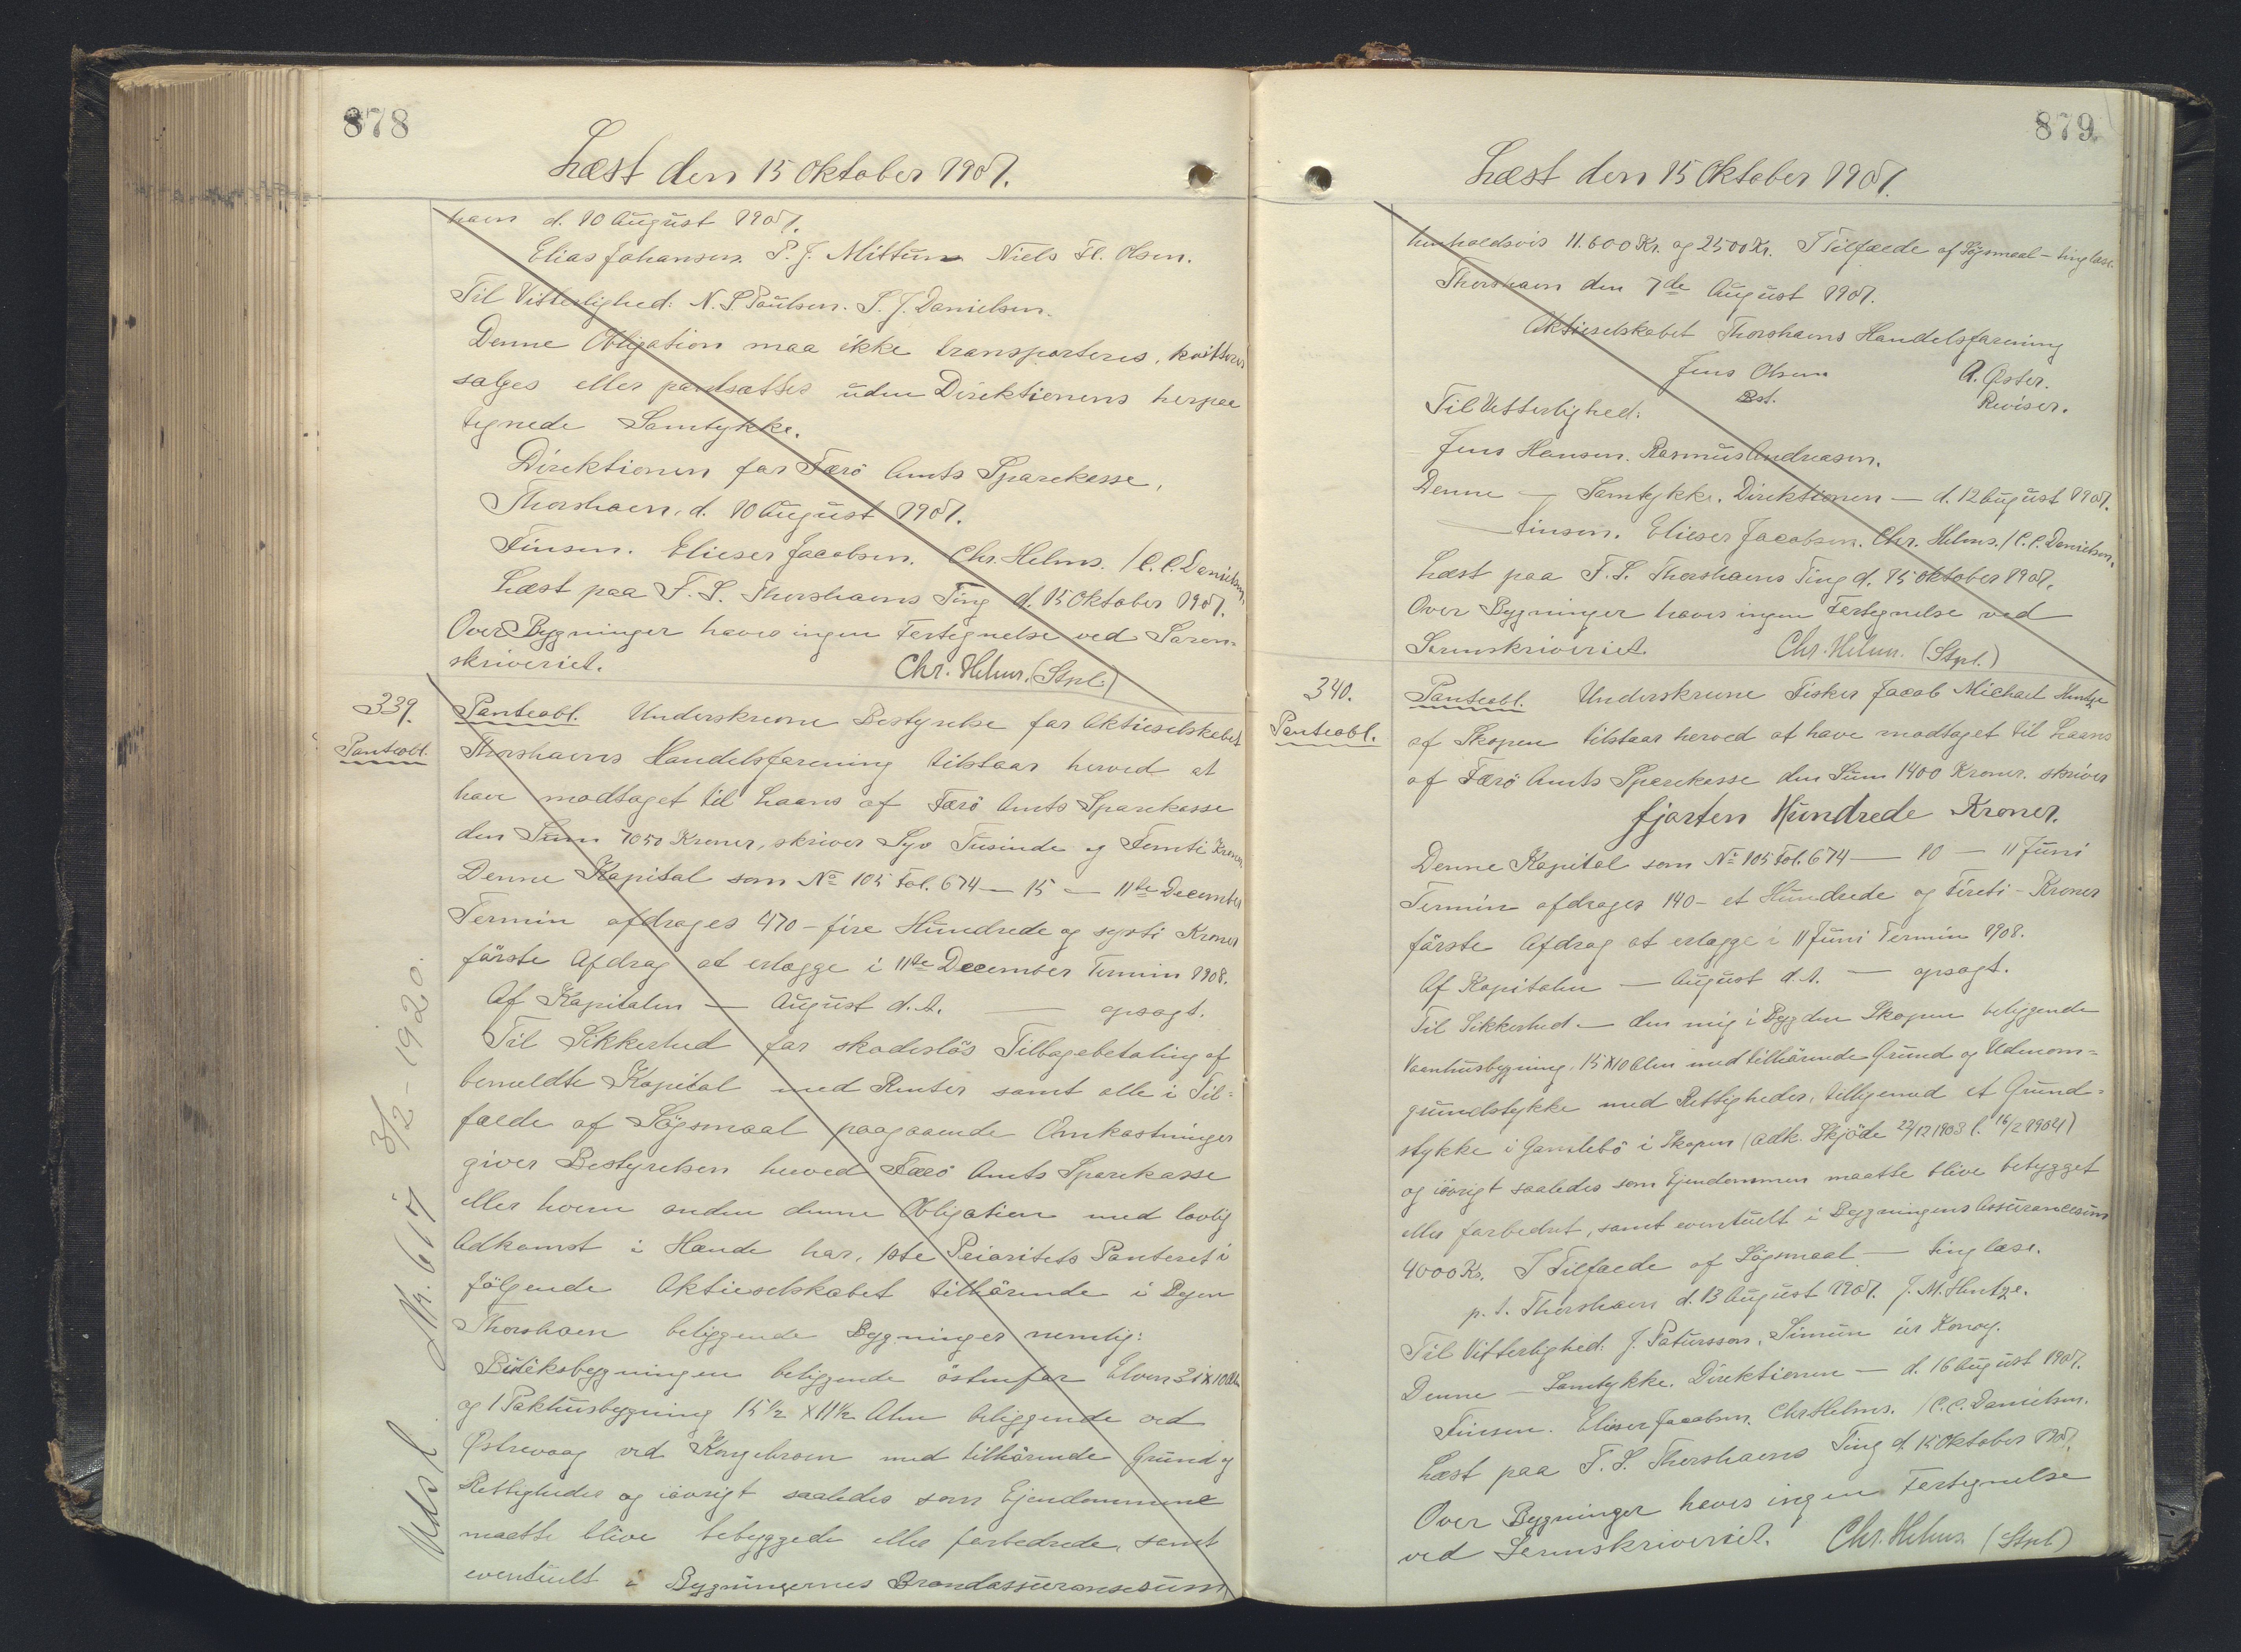 878
Læst den 15 Oktober 1907.
havn d. 10 August 1907.
Elias Johansen. P. J. Mittun Niels Fl. Olsen.
Til Vitterlighed: N. S. Poulsen. S. J. Danielsen.
Denne Obligation maa ikke transporteres, kvitteres
sælges eller pantsættes uden Direktionens herpaa
tegnede Samtykke.
Direktionen for Færö Amts Sparekasse,
Thorshavn, d. 10 August 1907.
Finsen. Elieser Jacobsen. Chr. Helms. /C. C. Danielsen.
Læst paa F. S. Thorshavns Ting d. 15 Oktober 1907.
Over Bygninger haves ingen Fortegnelse ved Soren-
skriveriet. Chr. Helms. (Stpl.)
339.
Panteobl.
Panteobl. Underskrevne Bestyrelse for Aktieselskabet
Thorshavns Handelsforening tilstaar herved at
have modtaget til Laans af Færö Amts Sparekasse
den Sum 7050 Kroner, skriver Syv Tusinde og Femti Kroner
Denne Kapital som No 105 Fol. 674 — 15 — 11te December
Termin afdrages 470 - fire Hundrede og sytti Kroner
förste Afdrag at erlægge i 11te December Termin 1908.
Af Kapitalen — August d. A. — opsagt.
Til Sikkerhed for skadeslös Tilbagebetaling af
bemeldte Kapital med Renter samt alle i Til-
fælde af Sögsmaal paagaaende Omkostninger
giver Bestyrelsen herved Færö Amts Sparekasse
eller hvem anden denne Obligation med lovlig
Adkomst i Hænde har, 1ste Prioritets Panteret i
fölgende Aktieselskabet tilhörende i Byen
Thorshavn beliggende Bygninger nemlig:
Butiksbygningen beliggende östenfor Elven 31 x 10 Aln
og 1 Pakhusbygning 15 1/2 x 11 1/2 Alen beliggende ved
Østrevaag ved Kongebroen med tilhörende Grund og
Rettigheder og iövrigt saaledes som Ejendommene
maatte blive bebyggede eller forbedrede, samt
eventuelt i Bygningernes Brandassuransesum
Udsl. Nr. 617 3/2 - 1920.
879
Læst den 15 Oktober 1907.
henholdsvis 11.600 Kr. og 2500 Kr. I Tilfælde af Sögsmaal — tinglæse.
Thorshavn den 7de August 1907.
Aktieselskabet Thorshavns Handelsforening
Jens Olsen A. Øster.
Bst. Revisor.
Til Vitterlighed:
Jens Hansen. Rasmus Andreasen.
Denne — Samtykke. Direktionen — d. 12 August 1907.
Finsen. Elieser Jacobsen. Chr. Helms. /C. C. Danielsen.
Læst paa F. S. Thorshavns Ting d. 15 Oktober 1907.
Over Bygninger haves ingen Fortegnelse ved
Sorenskriveriet. Chr. Helms. (Stpl.)
340.
Panteobl.
Panteobl. Underskrevne Fisker Jacob Michael Hentze
af Skopen tilstaar herved at have modtaget til Laans
af Færö Amts Sparekasse den Sum 1400 Kroner. skriver
fjorten Hundrede Kroner.
Denne Kapital som No 105 Fol. 674 — 10 — 11 Juni
Termin afdrages 140 - et Hundrede og Fireti - Kroner
förste Afdrag at erlægge i 11 Juni Termin 1908.
Af Kapitalen — August d. A. — opsagt.
Til Sikkerhed — den mig i Bygden Skopen beliggende
Vaanhusbygning, 15 x 10 Alen med tilhörende Grund og Udenoms-
grundstykke med Rettigheder, tilligemed et Grund-
stykke i Gamlebö i Skopen (Adk. Skjöde 22/12 1903 l. 16/2 1904)
og iövrigt saaledes som Ejendommen maatte blive bebygget
eller forbedret, samt eventuelt i Bygningens Assurancesum
4000 Kr. I Tilfælde af Sögsmaal — tinglæse.
p. t. Thorshavn d. 13 August 1907. J. M. Hentze.
Til Vitterlighed: J. Patursson. Simun úr Konoy.
Denne — Samtykke. Direktionen — d. 16 August 1907.
Finsen. Elieser Jacobsen. Chr. Helms. /C. C. Danielsen.
Læst paa F. S. Thorshavns Ting d. 15 Oktober 1907.
Over Bygninger haves ingen Fortegnelse
ved Sorenskriveriet. Chr. Helms. (Stpl.)